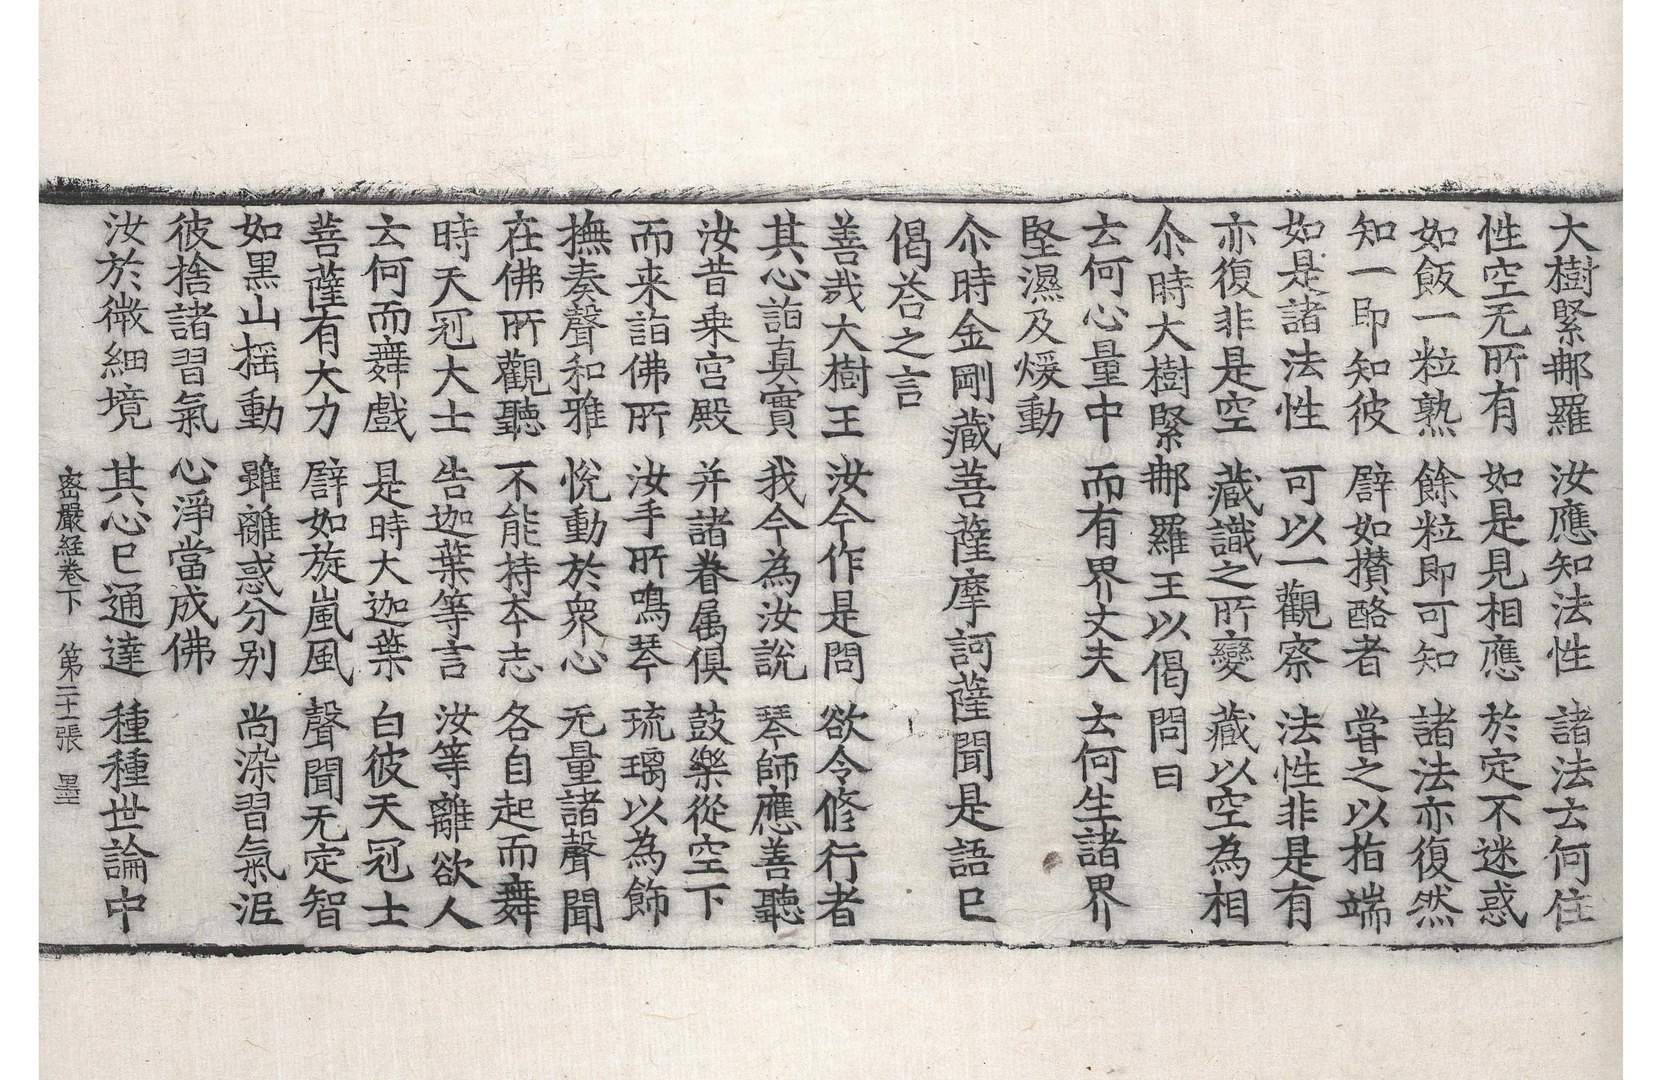 大樹緊那羅 汝應知法性 諸法云何住
性空无所有 如是見相應 於定不迷惑
如飯一粒熟 餘粒即可知 諸法亦復然
知一即知彼 譬如攢酪者 嘗之以指端
如是諸法性 可以一觀察 法性非是有
亦復非是空 藏識之所變 藏以空為相
尒時大樹緊那羅王以偈問曰
云何心量中 而有界丈夫 云何生諸界
堅濕及煖動
尒時金剛藏菩薩摩訶薩聞是語已
偈荅之言
善哉大樹王 汝今作是問 欲令修行者
其心詣真實 我今為汝說 琴師應善聽
汝昔乗宮殿 并諸眷属俱 鼓樂從空下
而来詣佛所 汝手所鳴琴 琉璃以為飾
撫奏聲和雅 恱動於衆心 无量諸聲聞
在佛所觀聽 不能持本志 各自起而舞
時天冠大士 告迦葉等言 汝等離欲人
云何而舞戲 是時大迦葉 白彼天冠士
菩薩有大力 譬如旋嵐風 聲聞无定智
如黑山搖動 雖離惑分别 尚染習氣泥
彼捨諸習氣 心淨當成佛
汝於微細境 其心已通達 種種世論中
密嚴経卷下 第二十一張 墨